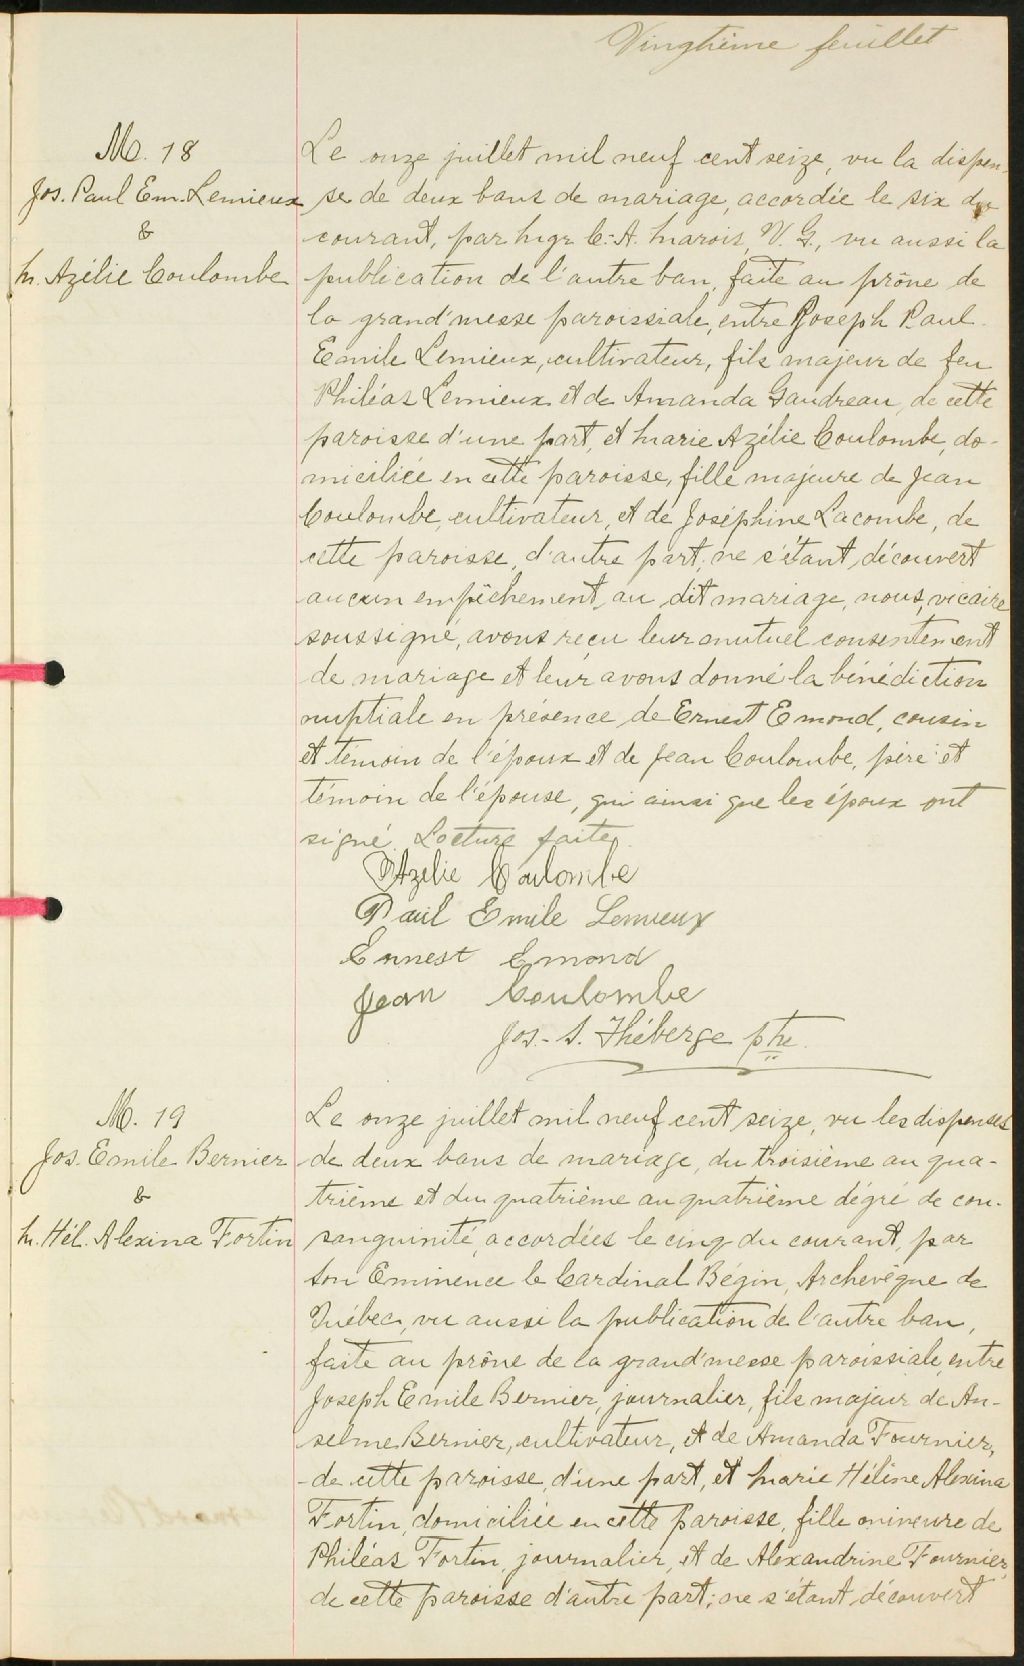 Vingtième feuillet
M. 18
Jos. Paul Em. Lemieux
&
M. Azélie Coulombe
Le onze juillet mil neuf cent seize, vu la dispen-
se de deux bans de mariage, accordée le six du
courant, par Mgr C.-A. Marois, V. G., vu aussi la
publication de l'autre ban, faite au prône de
la grand'messe paroissiale, entre Joseph Paul
Emile Lemieux, cultivateur, fils majeur de feu
Philéas Lemieux et de Amanda Gaudreau, de cette
paroisse d'une part, et Marie Azélie Coulombe, do-
miciliée en cette paroisse, fille majeure de Jean
Coulombe, cultivateur, et de Joséphine Lacombe, de
cette paroisse, d'autre part; ne s'étant découvert
aucun empêchement, au dit mariage, nous, vicaire
soussigné, avons reçu leur mutuel consentement
de mariage et leur avons donné la bénédiction
nuptiale en présence de Ernest Emond, cousin
et témoin de l'époux et de Jean Coulombe, père et
témoin de l'épouse, qui ainsi que les époux ont
signé. Lecture faite.
Azelie Coulombe
Paul Emile Lemieux
Ernest Emond
Jean Coulombe
Jos.-S. Théberge ptre.
M. 19
Jos. Emile Bernier
&
M. Hél. Alexina Fortin
Le onze juillet mil neuf cent seize, vu les dispenses
de deux bans de mariage, du troisième au qua-
trième et du quatrième au quatrième dégré de con-
sanguinité, accordées le cinq du courant, par
Son Eminence le Cardinal Bégin, Archevêque de
Québec, vu aussi la publication de l'autre ban,
faite au prône de la grand'messe paroissiale, entre
Joseph Emile Bernier, journalier, fils majeur de An-
selme Bernier, cultivateur, et de Amanda Fournier,
de cette paroisse, d'une part, et Marie Hélène Alexina
Fortin, domiciliée en cette paroisse, fille mineure de
Philéas Fortin, journalier, et de Alexandrine Fournier,
de cette paroisse d'autre part; ne s'étant découvert